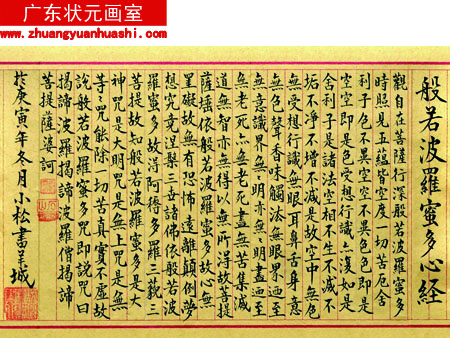 广东状元画室
www.zhuangyuanhuashi.com
般若波羅蜜多心经
觀自在菩薩行深般若波羅蜜多
時照見五蕴皆空度一切苦厄舍
利子色不異空空不異色色即是
空空即是色受想行識亦復如是
舍利子是諸法空相不生不滅不
垢不淨不增不減是故空中無色
無受想行識無眼耳鼻舌身意
無色聲香味觸法無眼界乃至
無意識界無〻明亦無〻明盡乃至
無老死亦無老死盡無苦集滅
道無智亦無得以無所得故菩提
薩埵依般若波羅蜜多故心無
罣礙故無有恐怖遠離顛倒夢
想究竟涅槃三世諸佛依般若波
羅蜜多故得阿耨多羅三藐三
菩提故知般若波羅蜜多是大
神咒是大明咒是無上咒是無
等〻咒能除一切苦真實不虛故
說般若波羅蜜多咒即說咒曰
揭諦波羅揭諦波羅僧揭諦
菩提薩婆訶
於庚寅年冬月小松書羊城